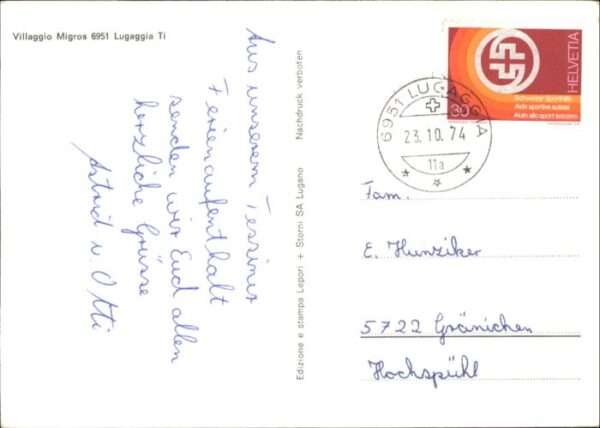 Villaggio Migros 6951 Lugaggia Ti
Aus unserem Tessiner
Ferienaufenthalt
senden wir Euch allen
herzliche Grüsse
Astrid u. Otti
Edizione e stampa Lepori + Storni SA Lugano
Nachdruck verboten
6951 LUGAGGIA
23.10.74
11a
HELVETIA
30
Schweizer Sporthilfe
Aide sportive suisse
Aiuto allo sport svizzero
Fam.
E. Hunziker
5722 Gränichen
Hochspühl